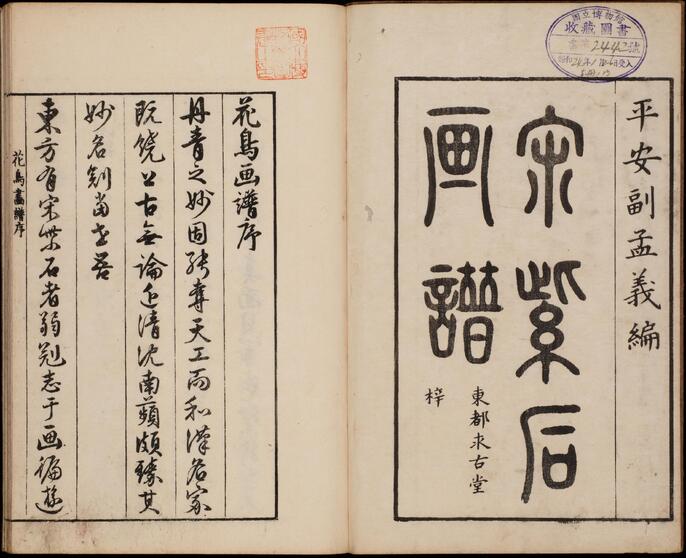 平安副孟義編
宋紫石
画譜
東都求古堂
梓
國立博物館
收藏圖書
2442號
花鳥画譜序
丹青之妙固能奪天工而和漢名家
既饒上古無論近清沈南蘋頗臻其
妙名別当世吾
東方有宋紫石者弱冠志于画徧遊
花鳥畫譜序